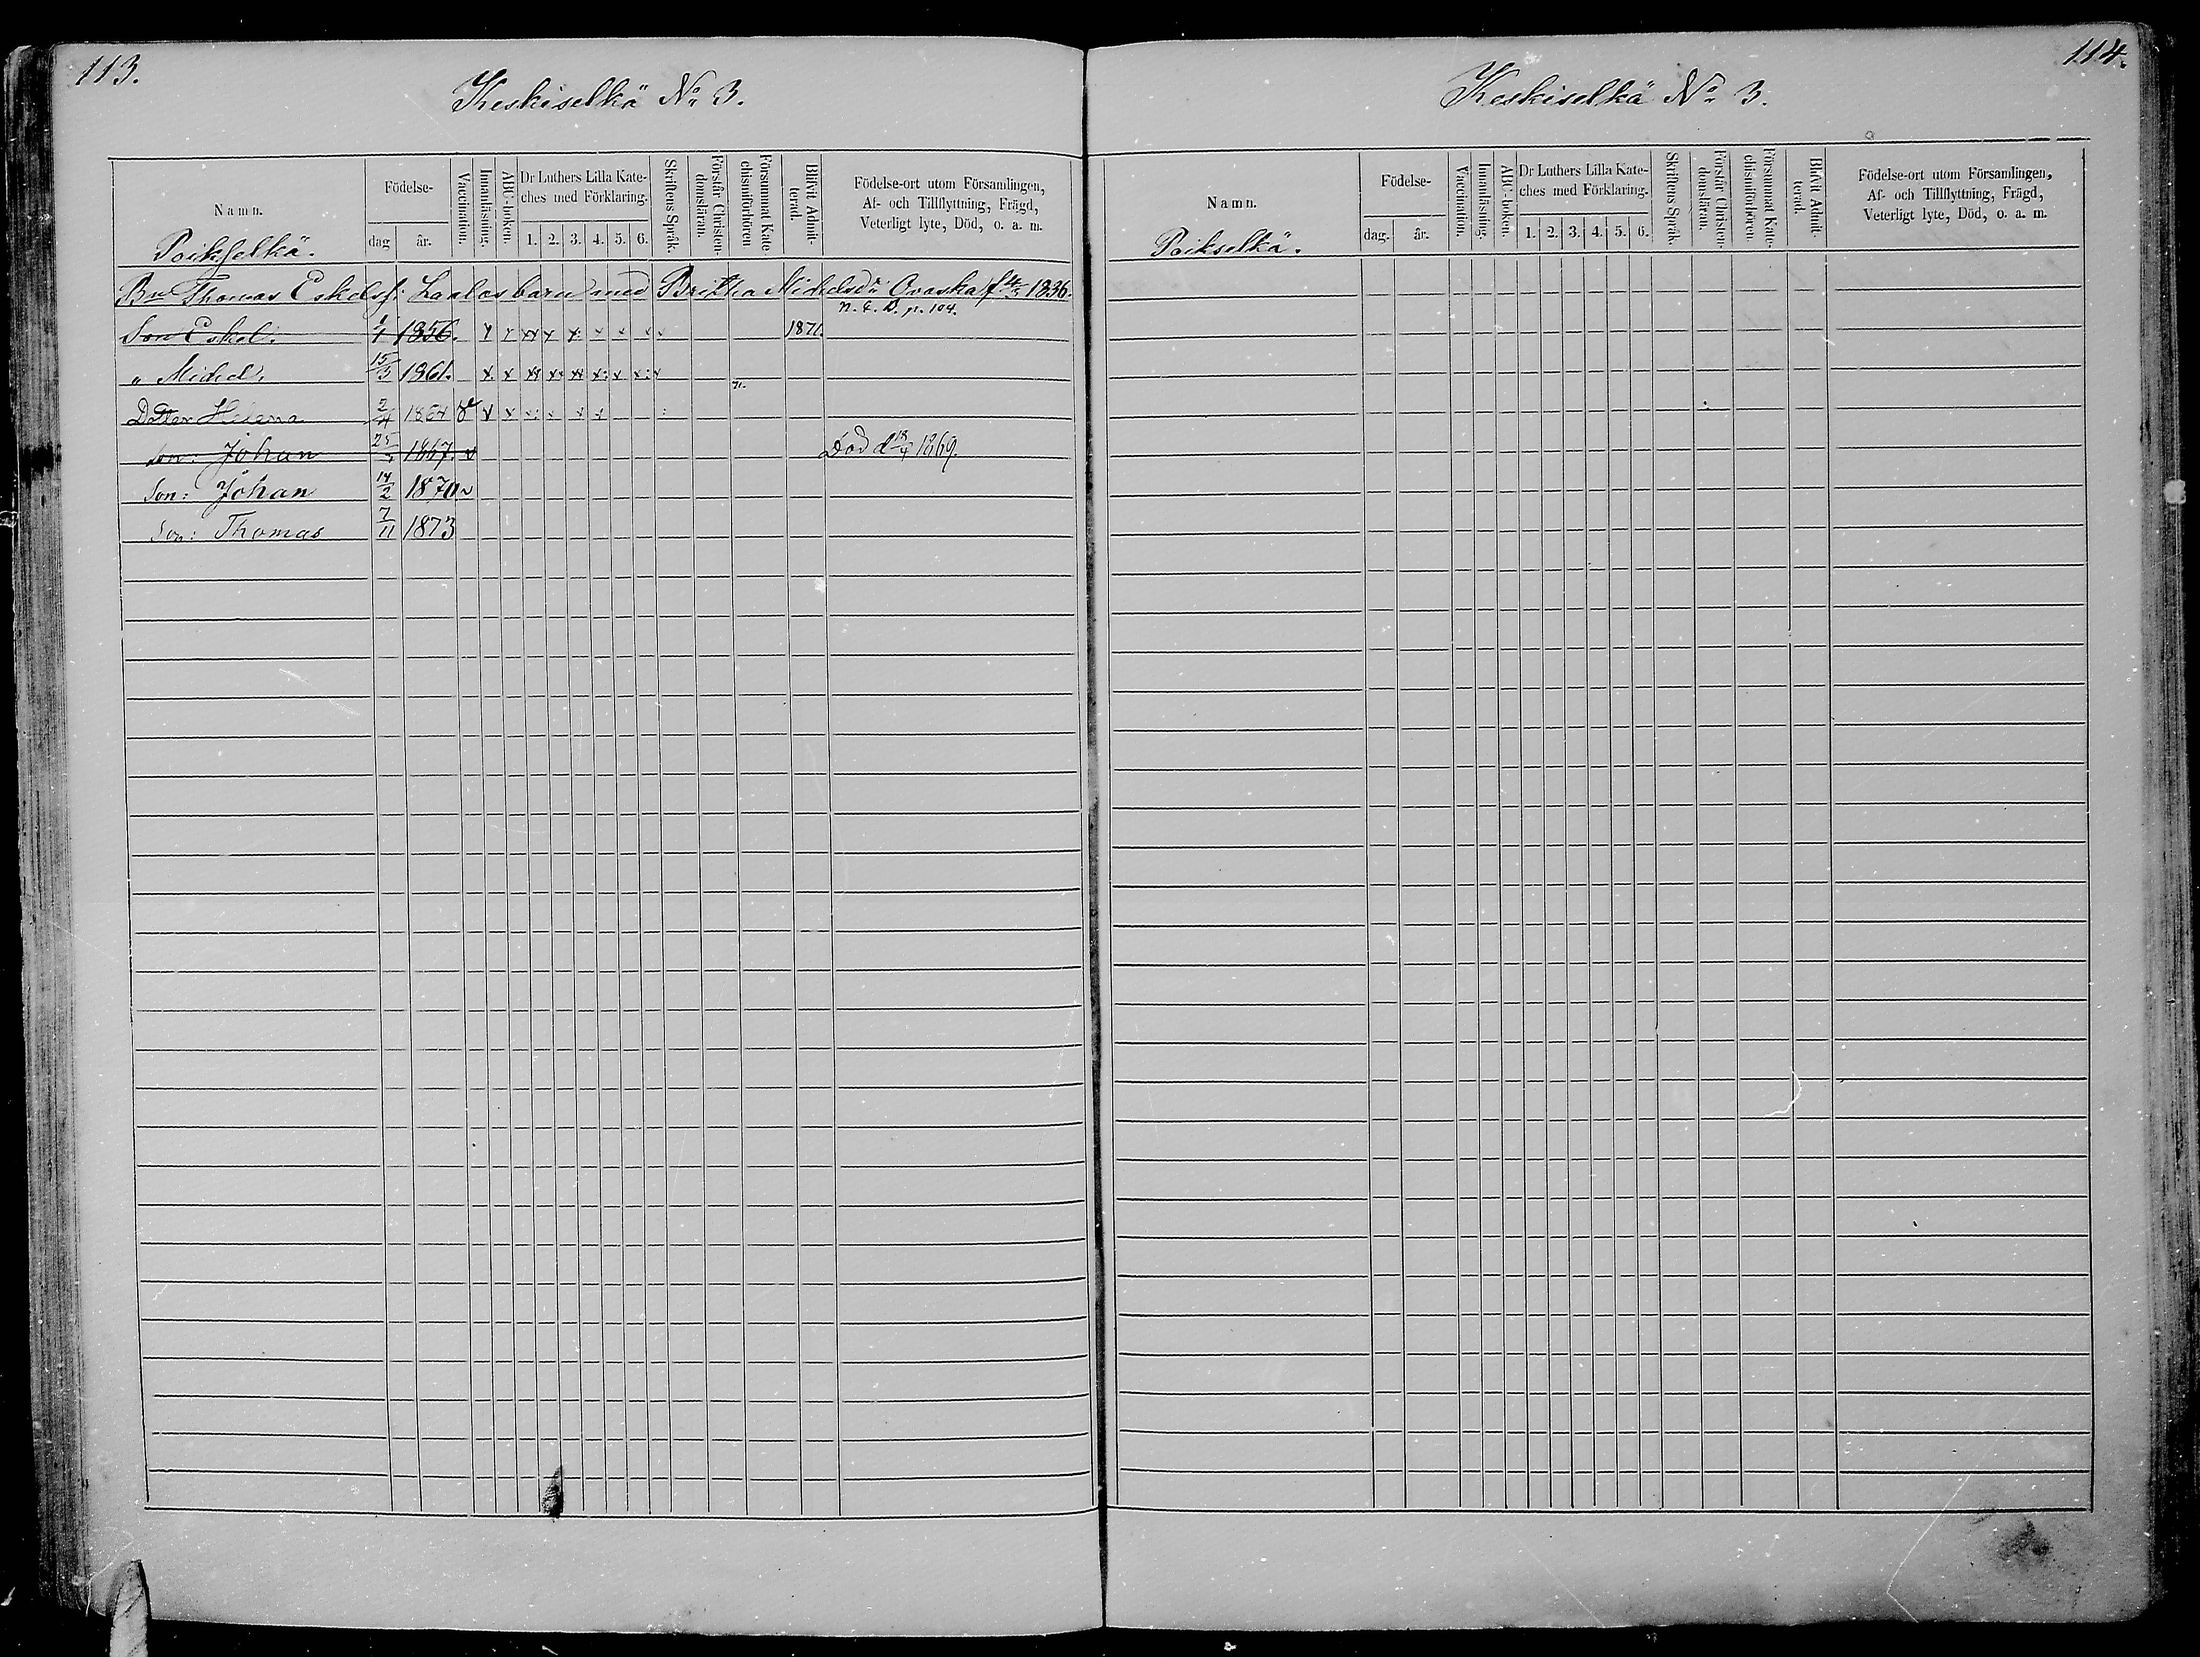 113.
Keskiselkä No 3.
Namn.
Födelse-
dag
år.
Vaccination.
Innanläsning.
ABC-boken.
Dr Luthers Lilla Kate-
ches med Förklaring.
1. 2. 3. 4. 5. 6.
Skriftens Språk.
Förstår Christen-
domsläran.
Försummat Kate-
chismiförhören
Blifvit Admit-
terad.
Födelse-ort utom Församlingen,
Af- och Tillflyttning, Frägd,
Veterligt lyte, Död, o. a. m.
Poikselkä.
Bn Thomas Eskelsf: Laalos barn med Britha Michelsdr Ovaska f 1836.
n. t. B. p. 104.
Son Eskel. 1/1 1856. x x xx x x x x x x 1871.
" Michel 15/5 1861. x x xx x xx x x x x
Dotter Helena 2/4 1864 v x x x x x x
Son: Johan 25 1867. v Död d 18/4 1869.
Son: Johan 14/2 1870 v
Son: Thomas 7/11 1873
114.
Keskiselkä No 3.
Namn.
Födelse-
dag.
år.
Vaccination.
Innanläsning.
ABC-boken.
Dr Luthers Lilla Kate-
ches med Förklaring.
1. 2. 3. 4. 5. 6.
Skriftens Språk.
Förstår Christen-
domsläran.
Försummat Kate-
chismiförhören.
Blifvit Admit-
terad.
Födelse-ort utom Församlingen,
Af- och Tillflyttning, Frägd,
Veterligt lyte, Död, o. a. m.
Poikselkä.